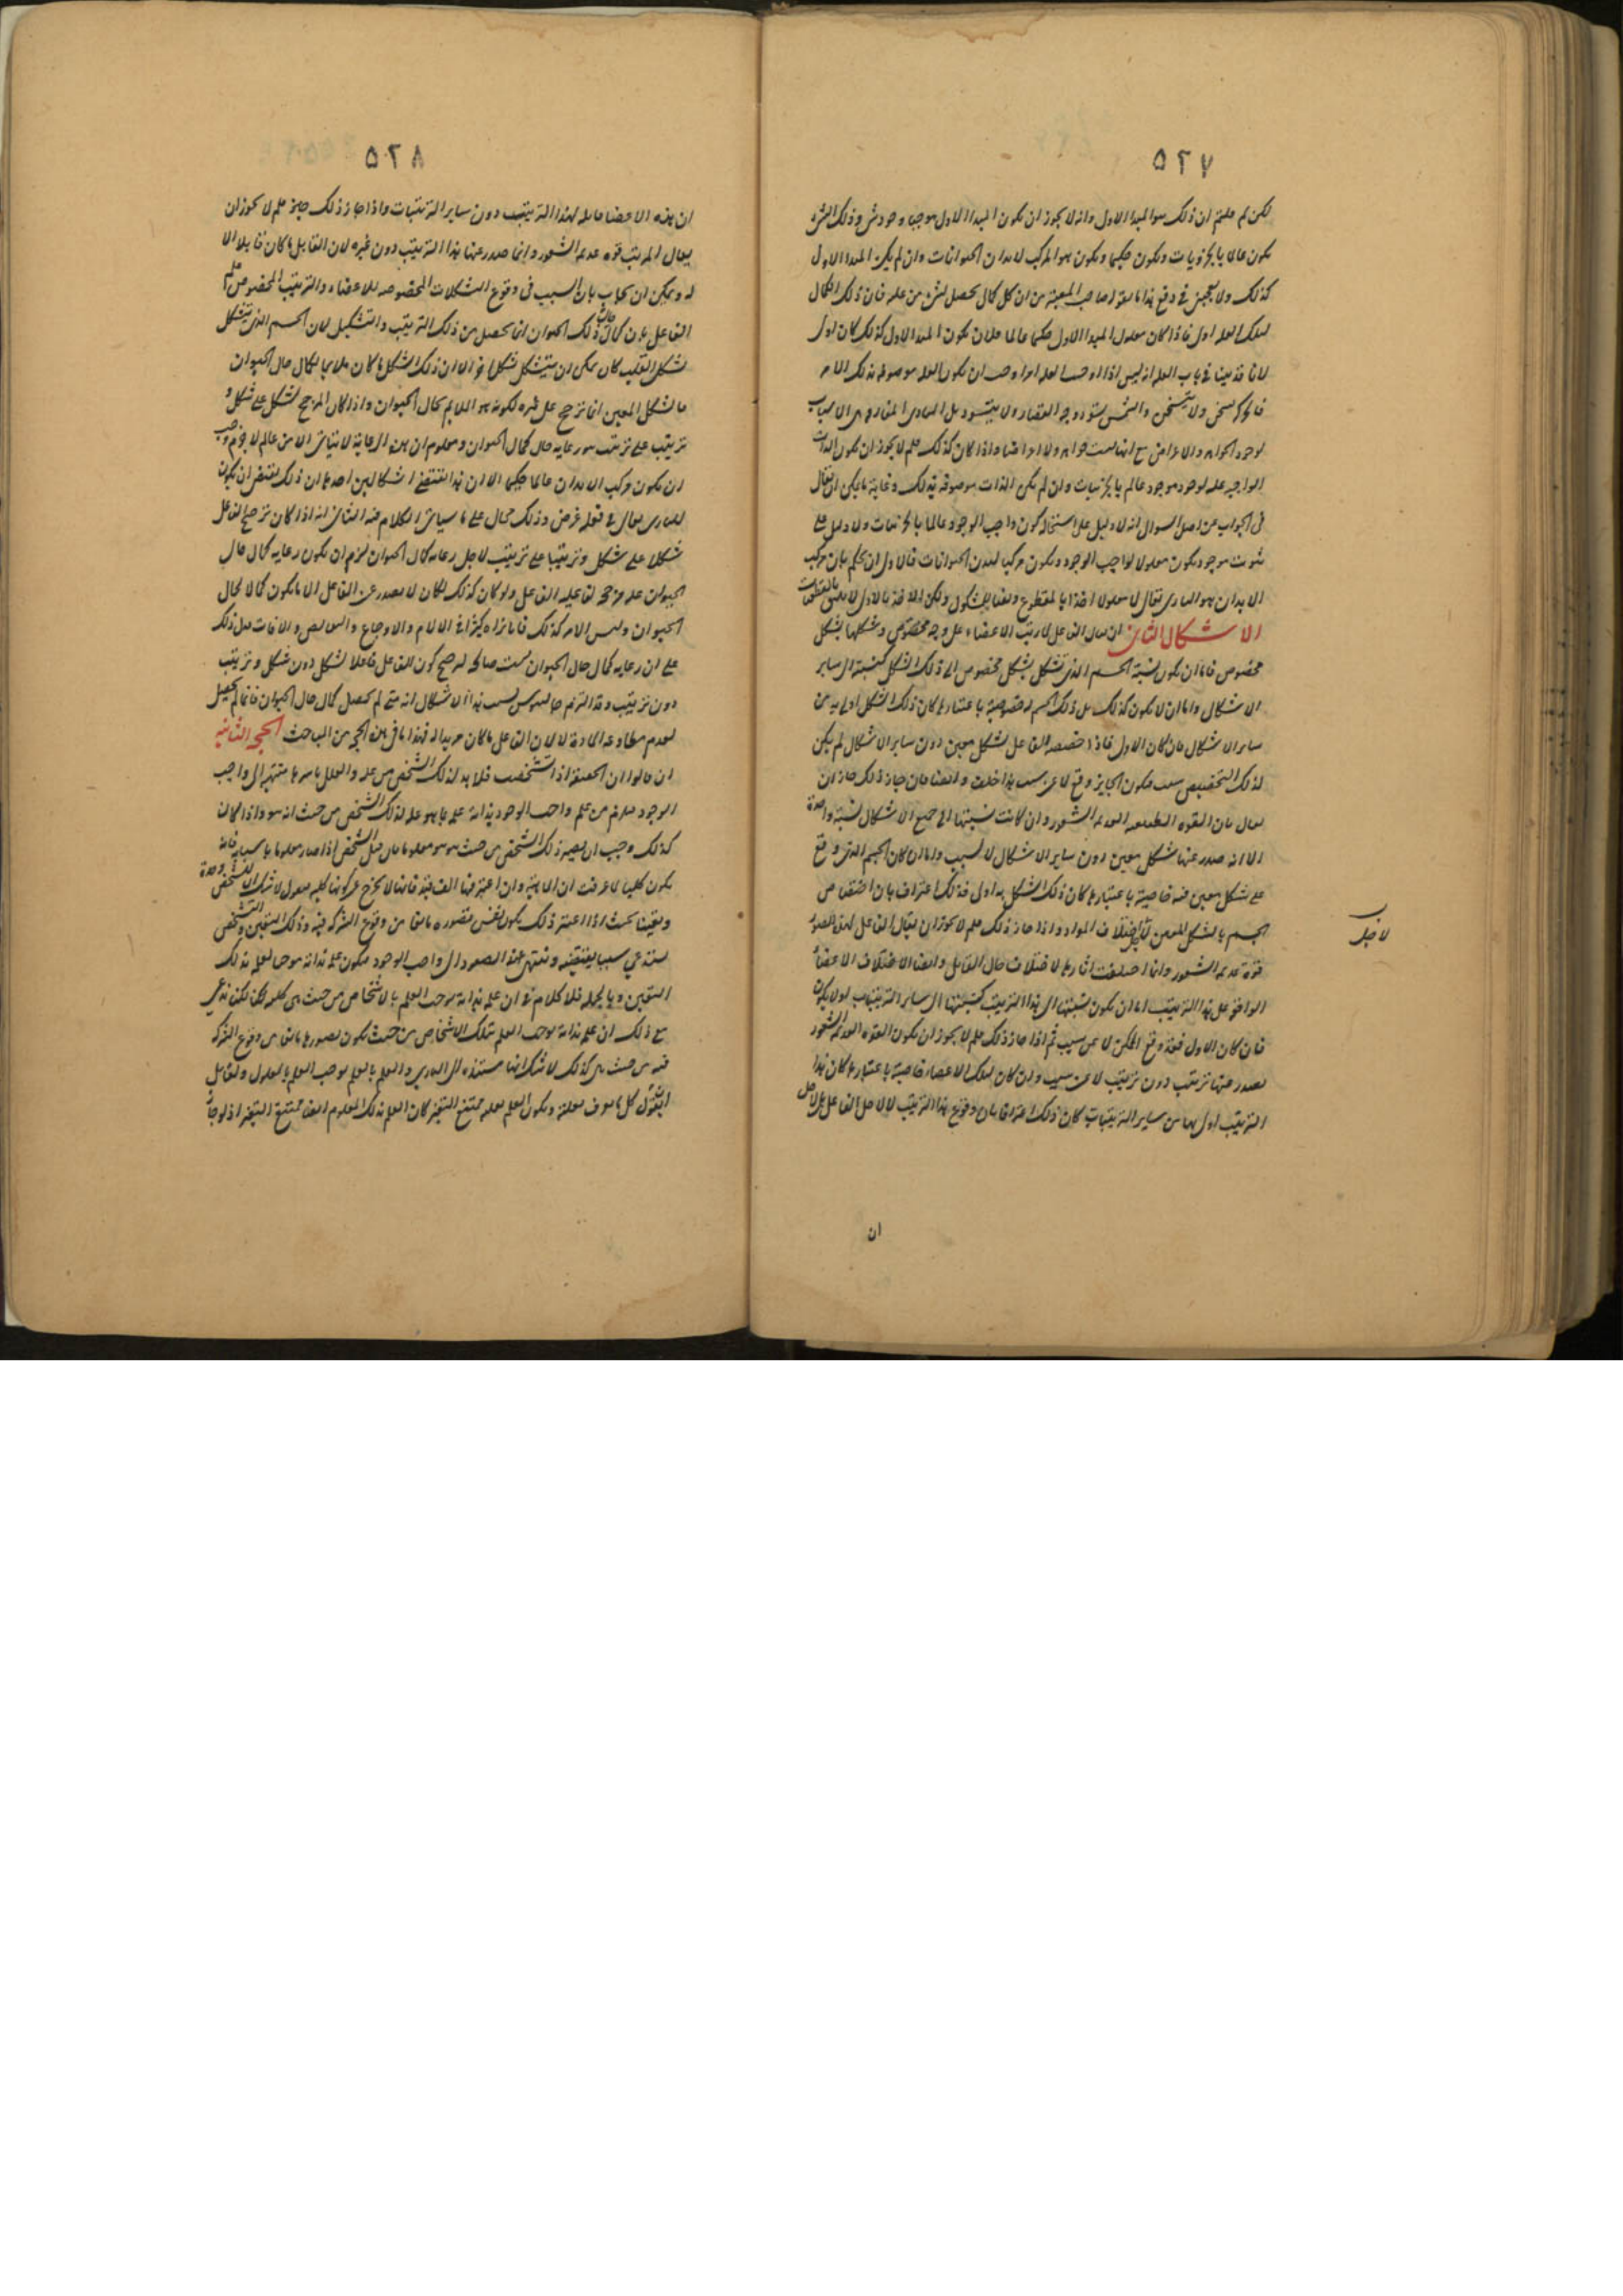 ٥٢٧
لكن لم قلتم ان ذلك هو المبدا الاول وانه لا يجوز ان يكون المبدا الاول موجبا وجود شئ وذلك الشئ
يكون عالما بالجزويات ويكون حكيما ويكون هو المركب لابدان الحيوانات وان لم يكن المبدا الاول
كذلك ولا يمكن في دفع هذا ما يقوله صاحب المعتبر من ان كل كمال يحصل لشئ من علة فان ذلك الكمال
لتلك العلة اولى فاذا كان معلول المبدا الاول حكيما عالما فلان يكون المبدا الاول كذلك كان اولى
لانا قد بينا في باب العلة انه ليس اذا اوجب العلة امرا وجب ان يكون العلة موصوفة بذلك الامر
فالحركة تسخن ولا يتسخن والشمس تسود وجه القصار ولا يتسود بل المبادى المفارقة هي الاسباب
لوجود الجواهر والاعراض مع انها ليست جواهر ولا اعراضا واذا كان كذلك فلم لا يجوز ان يكون الذات
الواجبة علة لوجود موجود عالم بالجزئيات وان لم يكن الذات موصوفة بذلك وغاية ما يمكن ان يقال
في الجواب عن اصل السوال انه لا دليل على استحالة كون واجب الوجود عالما بالجزئيات ولا دليل على
ثبوت موجود يكون معلولا لواجب الوجود ويكون مركبا لبدن الحيوانات فالاولى ان يحكم بان مركب
الابدان هو البارى تعالى لا معلوله اخذا بالمقطوع والغاء للمشكوك ولكن الاخذ بالاولى لا يليق بالقطعيات
الاشكال الثاني ان يقال الفاعل لما رتب الاعضاء على وجه مخصوص وشكلها بشكل
مخصوص فاما ان يكون نسبة الجسم الذى تشكل بشكل مخصوص الى ذلك الشكل كنسبته الى ساير
الاشكال واما ان لا يكون كذلك بل ذلك الجسم له خصوصية باعتبارها كان ذلك الشكل اولى به من
ساير الاشكال فان كان الاول فاذا خصصه الفاعل بشكل معين دون ساير الاشكال لم يكن
لذلك التخصيص سبب فيكون الجايز وقع لا عن سبب هذا خلف وايضا فان جاز ذلك جاز ان
يقال بان القوة الطبيعية العديمة الشعور وان كانت نسبتها الى جميع الاشكال نسبة واحدة
الا انه صدر عنها شكل معين دون ساير الاشكال لا لسبب واما ان كان الجسم الذى وقع
على شكل معين فيه خاصية باعتبارها كان ذلك الشكل به اولى فذلك اعتراف بان اختصاص
الجسم بالشكل المعين لاجل اختلاف المواد واذا جاز ذلك فلم لا يجوز ان يقال الفاعل لهذه الصور
قوة عديمة الشعور وانما اختلفت اثارها لاختلاف حال القابل وايضا الاختلاف الاعضاء
الواقع على هذا الترتيب اما ان يكون نسبتها الى هذا الترتيب كنسبتها الى ساير الترتيبات او لا يكون
فان كان الاول فقد وقع الممكن لا عن سبب ثم اذا جاز ذلك فلم لا يجوز ان يكون القوة العديمة الشعور
يصدر عنها ترتيب دون ترتيب لا عن سبب وان كان لتلك الاعضاء خاصية باعتبارها كان هذا
الترتيب اولى بها من ساير الترتيبات كان ذلك اعترافا بان وقوع هذا الترتيب لا لاجل الفاعل بل لاجل
ان
لاجل
٥٢٨
ان هذه الاعضا قابلة لهذا الترتيب دون ساير الترتيبات واذا جاز ذلك فلم لا يجوز ان
يقال المرتب قوة عديمة الشعور وانما صدر عنها هذا الترتيب دون غيره لان القابل ما كان قابلا الا
له ويمكن ان يجاب بان السبب في وقوع التشكلات المخصوصة للاعضاء والترتيب المخصوص علم
الفاعل بان كمال حال ذلك الحيوان انما يحصل من ذلك الترتيب والتشكيل لان الجسم الذى يتشكل
بشكل القلب كان يمكن ان يتشكل بشكل اخر الا ان ذلك الشكل ما كان ملايما لكمال حال الحيوان
فالشكل المعين انما ترجح على غيره لكونه هو الملايم لحال الحيوان واذا كان المرجح لشكل على شكل و
ترتيب على ترتيب هو رعاية حال كمال الحيوان ومعلوم ان هذه الرعاية لا يتأتى الا من عالم لا جرم وجب
ان يكون مركب الابدان عالما حكيما الا ان هذا يقتضى اشكالين احدهما ان ذلك يقتضى ان يكون
للبارى تعالى في فعله غرض وذلك محال على ما سياتى الكلام فيه الثانى انه اذا كان ترجيح الفاعل
شكلا على شكل وترتيبا على ترتيب لاجل رعاية كمال الحيوان لزم ان يكون رعاية كمال حال
الحيوان علة مرجحة لفاعلية الفاعل ولو كان كذلك لكان لا يصدر عن الفاعل الا ما يكون كمالا لحال
الحيوان وليس الامر كذلك فانا نراه كثيرا في الالام والاوجاع والنقايص والافات فدل ذلك
على ان رعاية كمال حال الحيوان ليست صالحة لترجيح كون الفاعل فاعلا لشكل دون شكل وترتيب
دون ترتيب وقد التزم جالينوس بسبب هذا الاشكال انه متى لم يحصل كمال حال الحيوان فانما لم يحصل
لعدم مطاوعة المادة لا لان الفاعل ما كان مريدا له فهذا ما في هذه الحجة من المباحث الحجة الثانية
ان قالوا ان الحقيقة اذا تشخصت فلا بد لذلك الشخص من علة والعلل باسرها منتهية الى واجب
الوجود فيلزم من علم واجب الوجود بذاته علمه بما هو علة لذلك الشخص من حيث انه هو واذا كان
كذلك وجب ان يصير ذلك الشخص من حيث هو هو معلوما فان قيل الشخص اذا صار معلوما باسبابه فانه
يكون كليا لما عرفت ان الماهية وان اعتبر فيها الف قيد فانها لا يخرج عن كونها كلية فنقول لا شك ان للشخص وحدة
وتعينا بحيث اذا اعتبر ذلك يكون نفس تصوره مانعا من وقوع الشركة فيه وذلك التعين والتشخص
يستدعي سببا يقتضيه وينتهى عند الصعود الى واجب الوجود فيكون علمه بذاته موجبا لعلمه بذلك
التعين وبالجملة فلا كلام في ان علمه بذاته يوجب العلم بالاشخاص من حيث هى كلية لكنا ندعى
مع ذلك ان علمه بذاته يوجب العلم بتلك الاشخاص من حيث يكون تصورها مانعا من وقوع الشركة
فيه من حيث هى كذلك لا شك انها مستندة الى البارى والعلم بالعلة يوجب العلم بالمعلول ولقايل
ان يقول كل ما عرف بعلته ويكون العلم بعلته ممتنع التغير كان العلم بذلك المعلوم ايضا ممتنع التغير اذ لو جاز